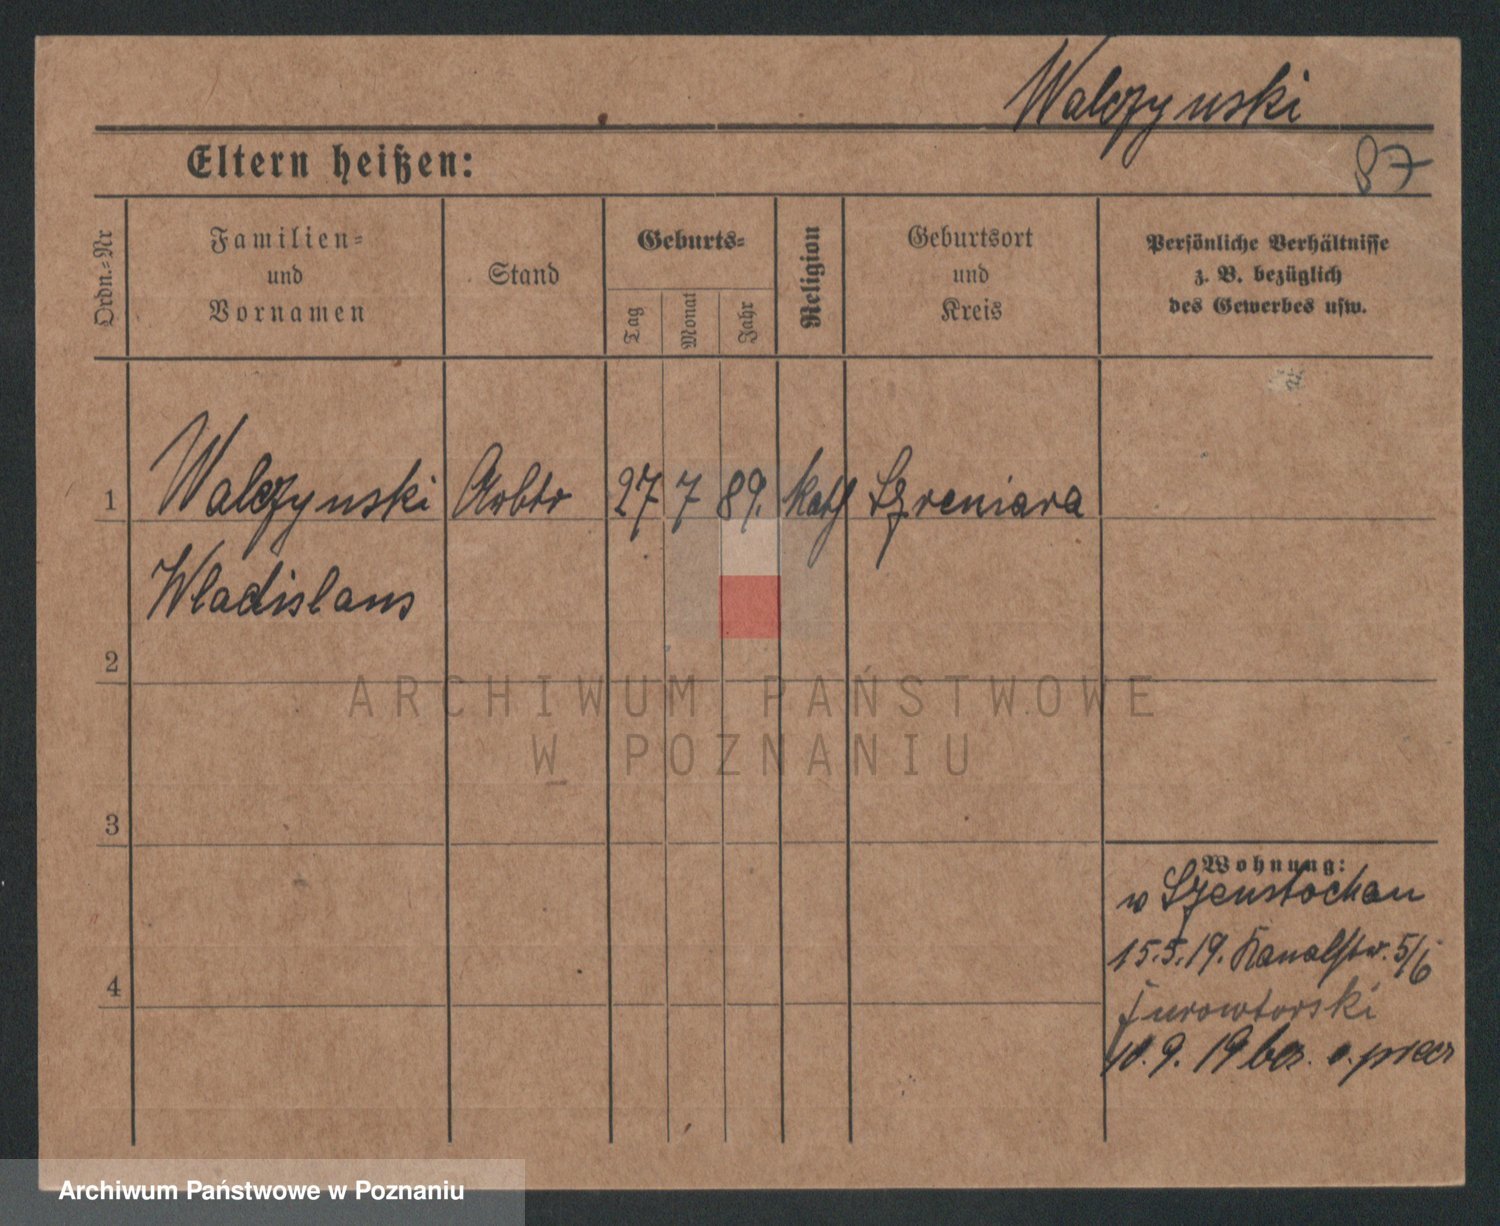 Walczynski
87
Eltern heißen:
Ordn.=Nr
Familien=
und
Vornamen
Stand
Geburts=
Tag
Monat
Jahr
Religion
Geburtsort
und
Kreis
Persönliche Verhältnisse
z. B. bezüglich
des Gewerbes usw.
1 Walczynski Arbtr 27 7 89. kath Szreniara
Wladislaus
2
ARCHIWUM PAŃSTWOWE
W POZNANIU
3
Wohnung:
w
15.5.19. Kanalstr. 5/6
4
10.9.19
Archiwum Państwowe w Poznaniu